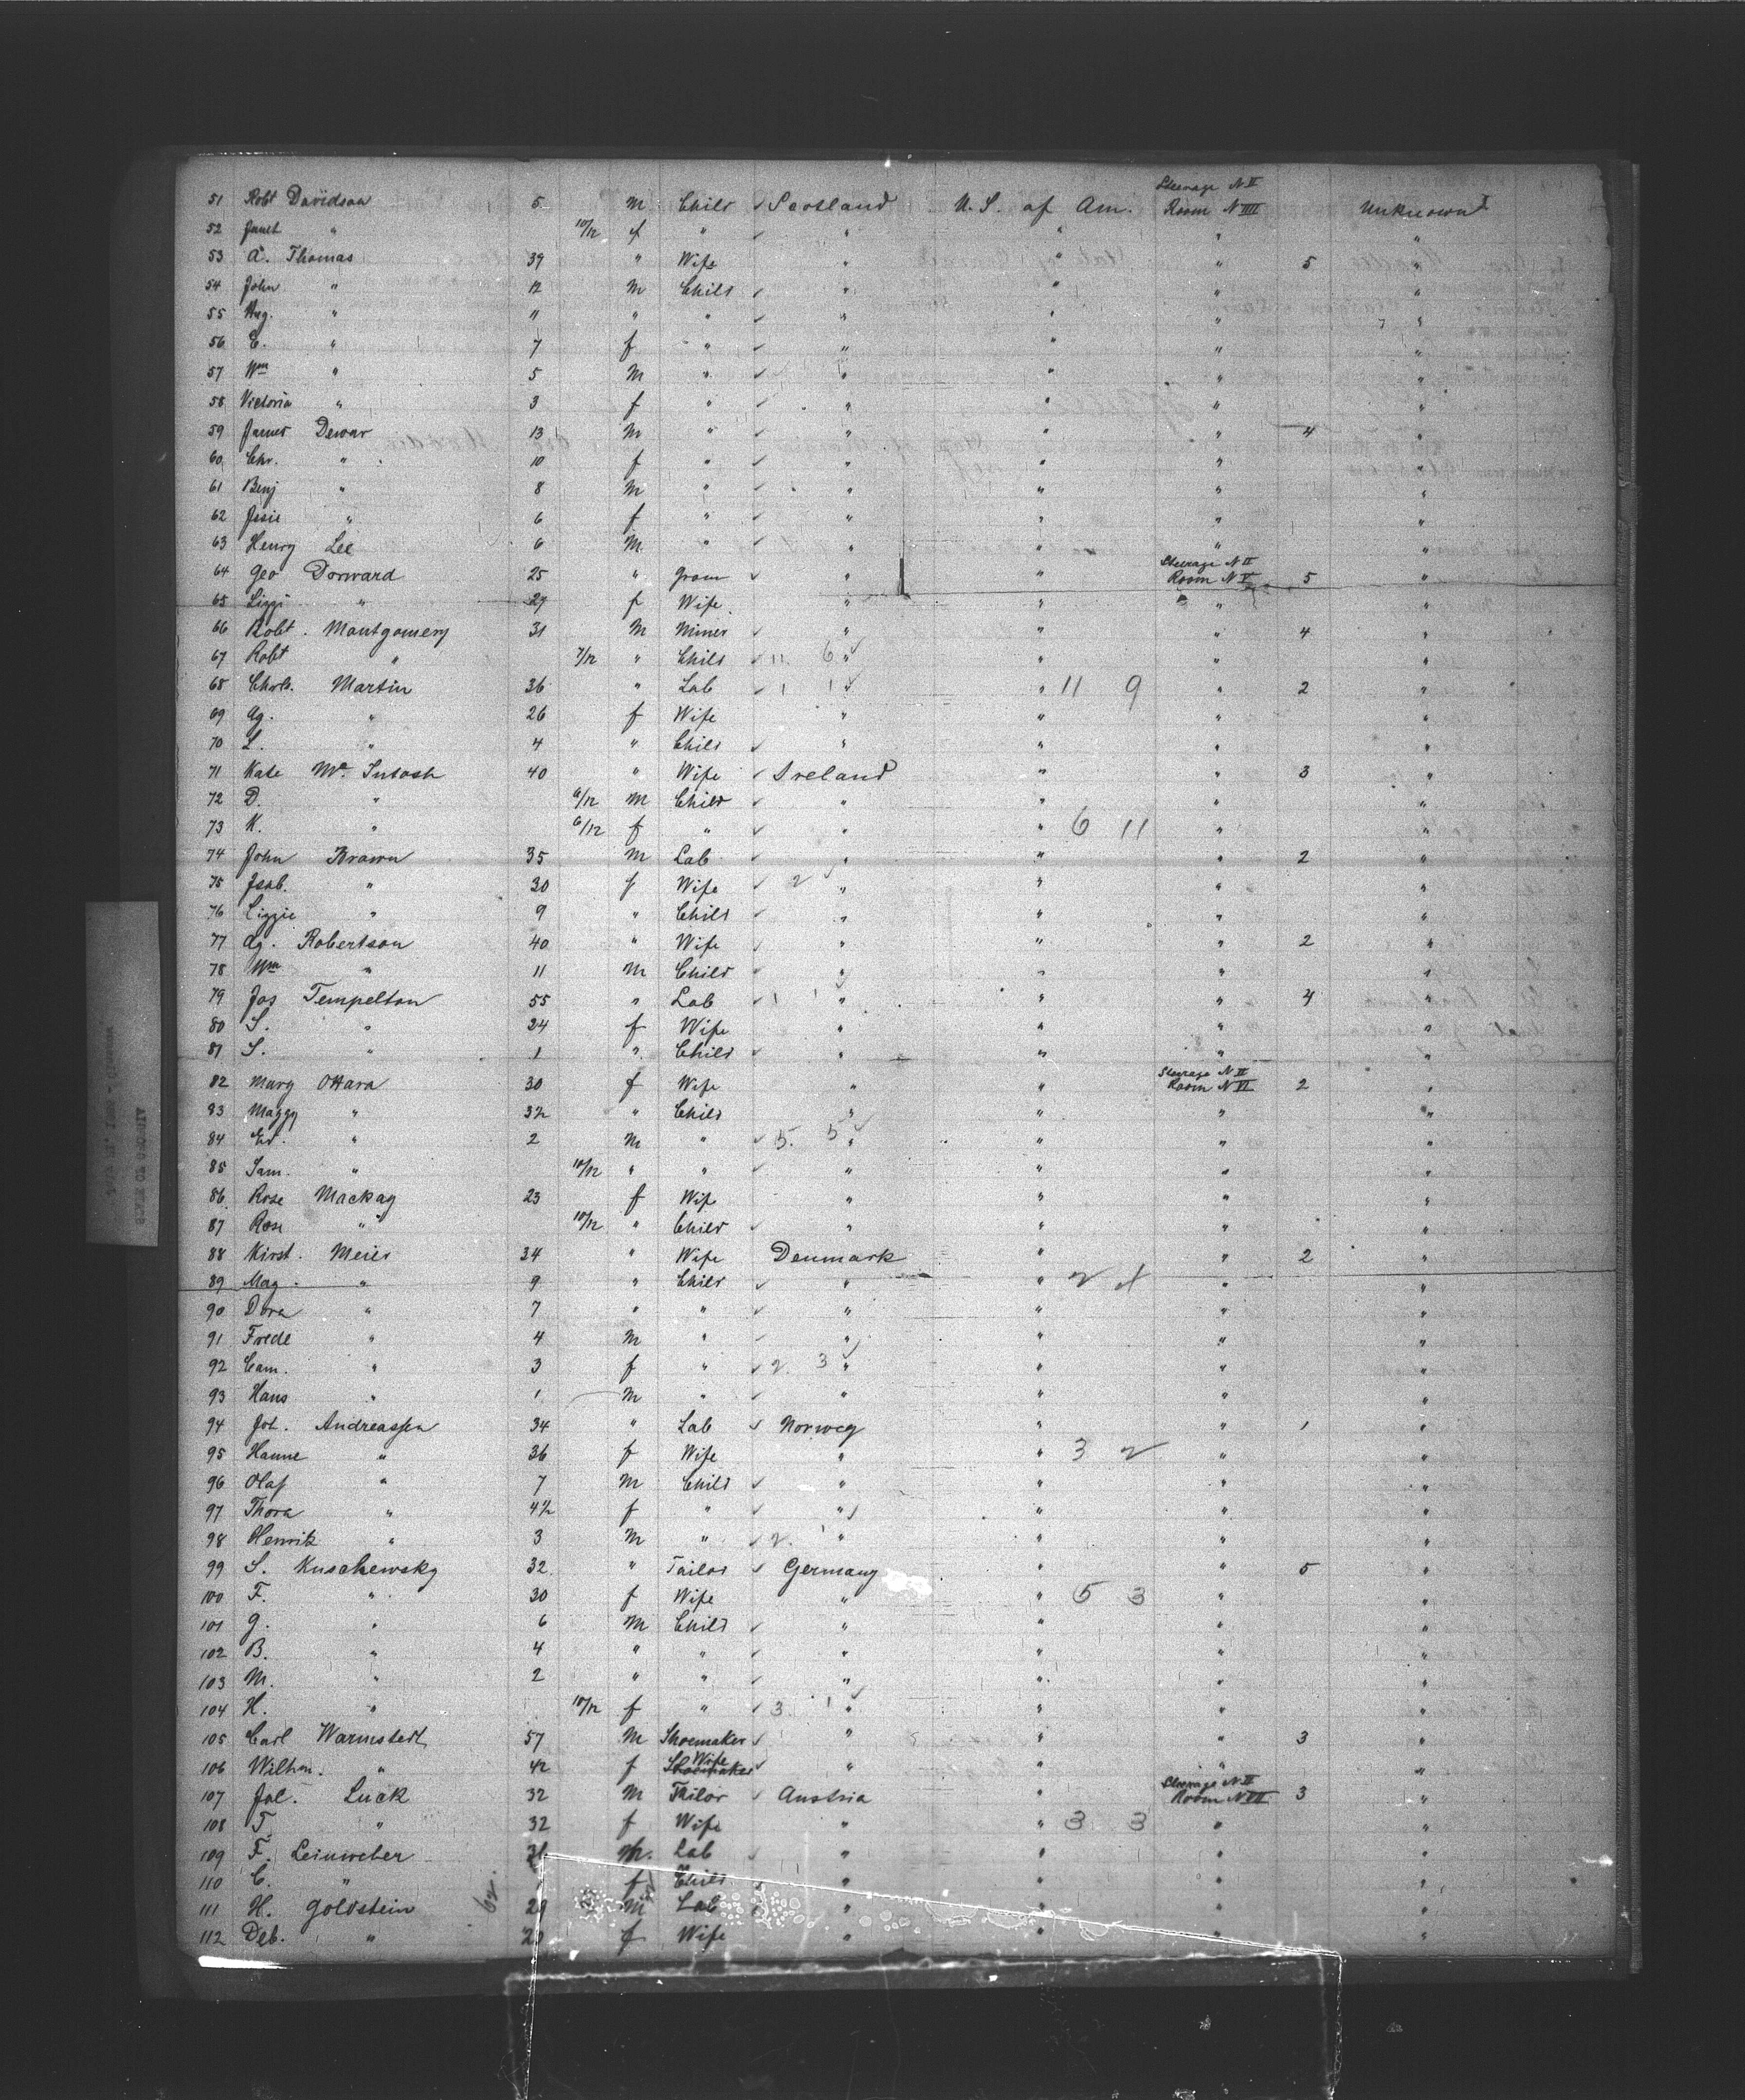 51 Robt Davidson 5 m Child ✓ Scotland U. S. of Am. Steerage N II Room N IIII Unknown
52 Janet " 10/12 f " ✓ " " " "
53 A. Thomas 39 " Wife " " " 5 "
54 John " 12 m Child ✓ " " " "
55 Aug. " 11 " " ✓ " " " "
56 E. " 7 f " ✓ " " " "
57 Wm " 5 m " ✓ " " " "
58 Victoria " 3 f " ✓ " " " "
59 James Dewar 13 m " ✓ " " " 4 "
60 Chr. " 10 f " ✓ " " " "
61 Benj " 8 m " ✓ " " " "
62 Jssie " 6 f " ✓ " " " "
63 Henry Lee 6 m " ✓ " " " "
64 Geo Dorward 25 " Grom ✓ " " Steerage N II Room N V 5 "
65 Lizzi " 27 f Wife " " " "
66 Robt. Montgomery 31 m Miner ✓ " " " 4 "
67 Robt " 7/12 " Child ✓ 11 6 " " " "
68 Chrls. Martin 36 " Lab ✓ 1 1 " " 11 9 " 2 "
69 Ag. " 26 f Wife " " " "
70 L. " 4 " Child ✓ " " " "
71 Kate Mc Intosh 40 " Wife ✓ Ireland " " 3 "
72 D. " 6/12 m Child ✓ " " " "
73 K. " 6/12 f " ✓ " " 6 11 " "
74 John Brown 35 m Lab ✓ " " " 2 "
75 Isab. " 30 f Wife ✓ 2 " " " "
76 Lizzie " 9 " Child ✓ " " " "
77 Ag. Robertson 40 " Wife ✓ " " " 2 "
78 Wm " 11 m Child ✓ " " " "
79 Jos Tempelton 55 " Lab ✓ 1 1 " " " 4 "
80 S. " 24 f Wife " " " "
81 S. " 1 " Child ✓ " " " "
82 Mary OHara 30 f Wife " " Steerage N II Room N VI 2 "
83 Maggy " 3½ " Child " " " "
84 Ed. " 2 m " ✓ 5. 5 " " " "
85 Sam. " 10/12 " " ✓ " " " "
86 Rose Mackay 23 f Wife " " " "
87 Rose " 10/12 " Child ✓ " " " "
88 Kirst. Meier 34 " Wife Denmark " " 2 "
89 Mag. " 9 " Child ✓ " " 2 " "
90 Dora " 7 " " ✓ " " " "
91 Frede " 4 m " ✓ " " " "
92 Cam. " 3 f " ✓ 2. 3 " " " "
93 Hans " 1 m " ✓ " " " "
94 Joh. Andreassen 34 " Lab ✓ Norweg " " 1 "
95 Hanne " 36 f Wife " " 3 2 " "
96 Olaf " 7 m Child ✓ " " " "
97 Thora " 4½ f " ✓ " " " "
98 Henrik " 3 m " ✓ 2. 1 " " " "
99 S. Kuschewsky 32 " Tailor ✓ Germany " " 5 "
100 F. " 30 f Wife " " 5 3 " "
101 G. " 6 m Child ✓ " " " "
102 B. " 4 " " ✓ " " " "
103 M. " 2 " " ✓ " " " "
104 H. " 10/12 f " ✓ 3. 1 " " " "
105 Carl Warmstedt 57 m Shoemaker ✓ " " " 3 "
106 Wilhm. " 42 f Shoemaker Wife ✓ " " " "
107 Jol. Luck 32 m Tailor ✓ Austria " Steerage N II Room N VII 3 "
108 T " 32 f Wife " " 3 3 " "
109 F. Leinweber m. Lab ✓ " " " "
110 C. " f Child " " " "
111 H. Goldstein 29 m Lab " " " "
112 Deb. " f Wife " " " "